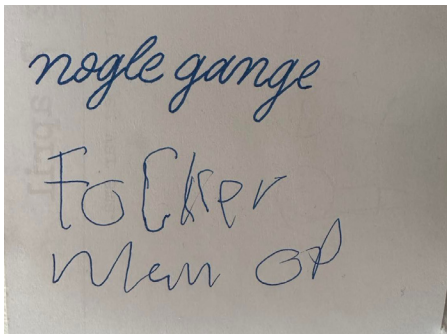 nogle gange
Focker
men op